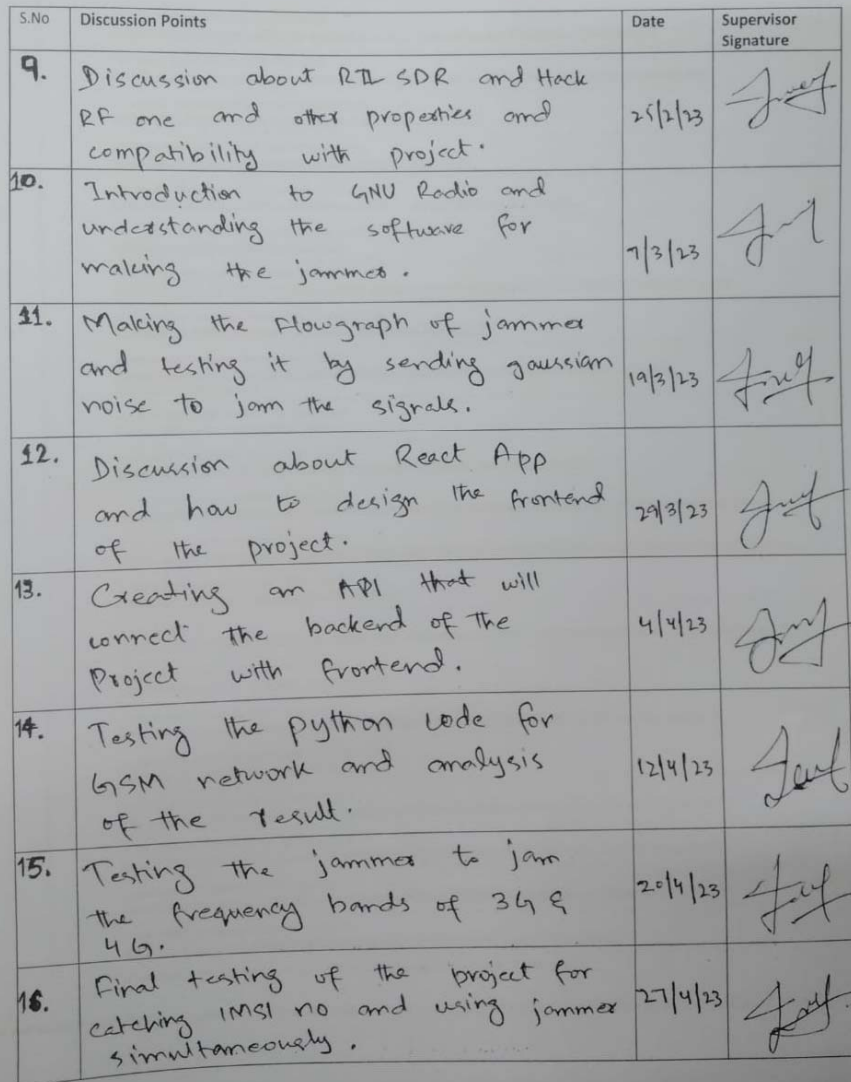 S.No Discussion Points Date Supervisor
Signature
9. Discussion about RTL SDR and Hack
RF one and other properties and 25/2/23
compatibility with project.
10. Introduction to GNU Radio and
understanding the software for
making the jammer. 7/3/23
11. Making the Flowgraph of jammer
and testing it by sending gaussian 19/3/23
noise to jam the signals.
12. Discussion about React App
and how to design the frontend 29/3/23
of the project.
13. Creating an API that will
connect the backend of the 4/4/23
Project with frontend.
14. Testing the python code for
GSM network and analysis 12/4/23
of the result.
15. Testing the jammer to jam
the frequency bands of 3G & 20/4/23
4G.
16. Final testing of the project for
catching IMSI no and using jammer 27/4/23
simultaneously.